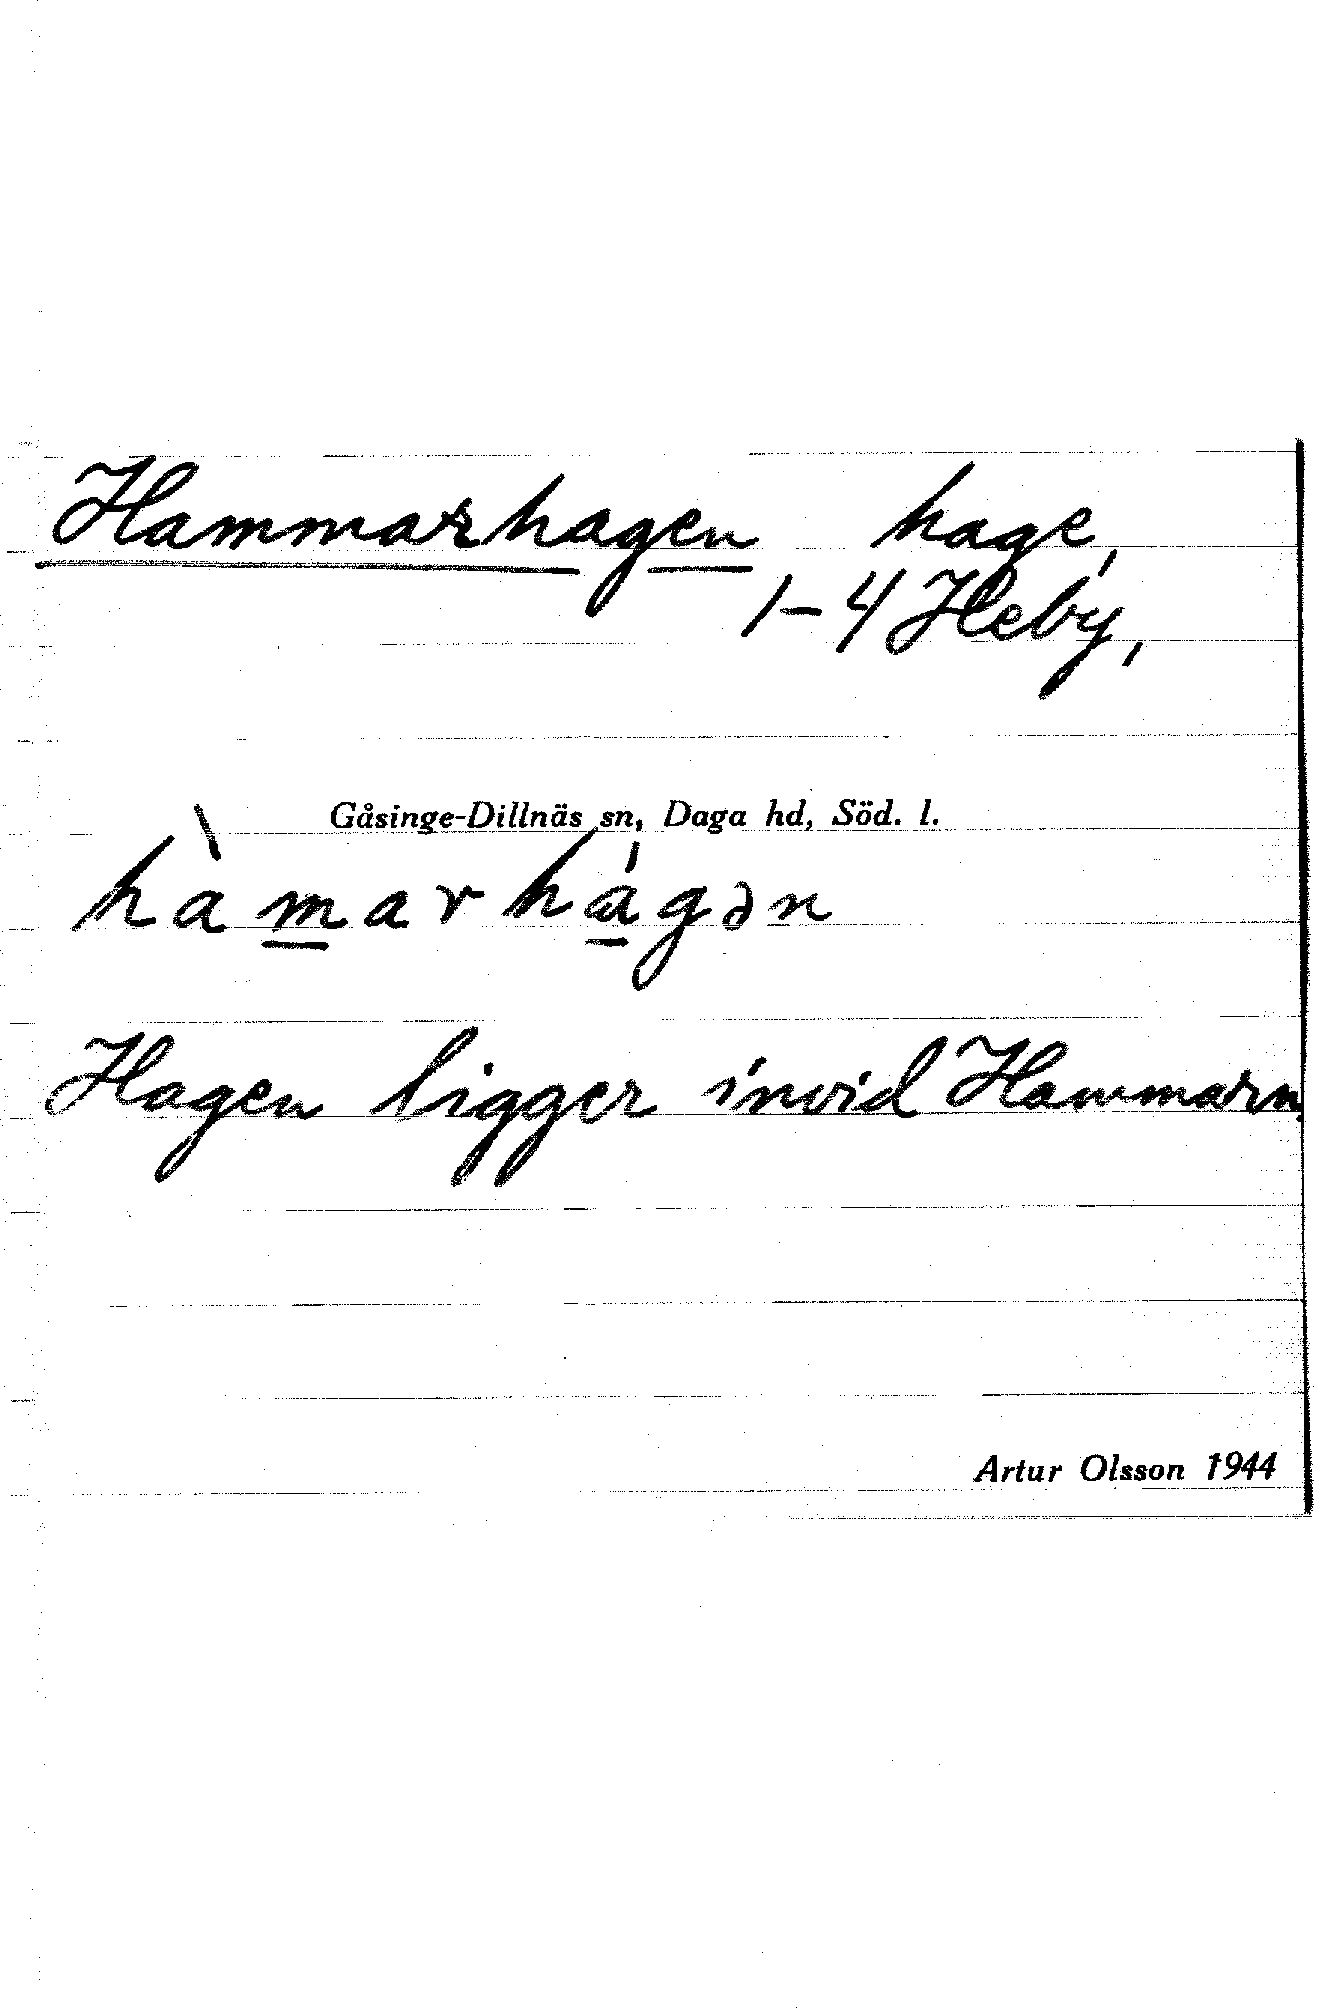 Hammarhagen hage,
1-4 Heby,
Gåsinge-Dillnäs sn, Daga hd, Söd. l.
hàmarhágən
Hagen ligger invid Hammarn.
Artur Olsson 1944